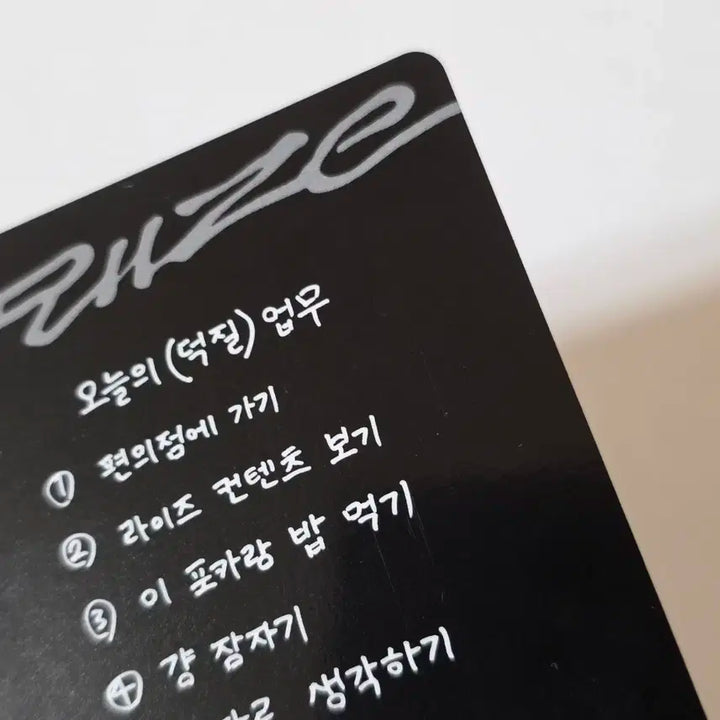 RIIZE
오늘의 (덕질) 업무
① 편의점에 가기
② 라이즈 컨텐츠 보기
③ 이 포카랑 밥 먹기
④ 걍 잠자기
생각하기